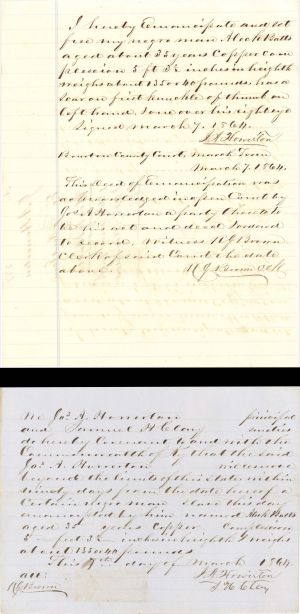 I hereby Emancipate and set
free my negro man Meek Batts
aged about 35 years Copper com
plession 5 ft 3½ inches in heighth
weighs about 135 or 40 pounds. has a
scar on first knuckle of thumb on
left hand. Some over his right eye
Signed March 7. 1864.
Js A Howerton
Bourbon County Court, March Term
March 7. 1864.
This Deed of Emancipation was
acknowledged in open Court by
Jas. A Howerton a party thereto to
be his act and deed & ordered
to record. Witness
Clerk of said Court the date
above.
We Jas. A. Howerton principal
and Samuel H Clay sureties
do hereby Covenant to and with the
Commonwealth of Ky that the said
Jas. A. Howerton will remove
beyond the limits of this state within
ninety days from the date hereof a
Certain negro man Slave this day
emancipated by him named Meek Batts
aged 35 years Copper Complexion
5 feet 3½ inches in heighth & weighs
about 135 or 40 pounds
This 7th day of March 1864.
att: Js A Howerton
S H Clay